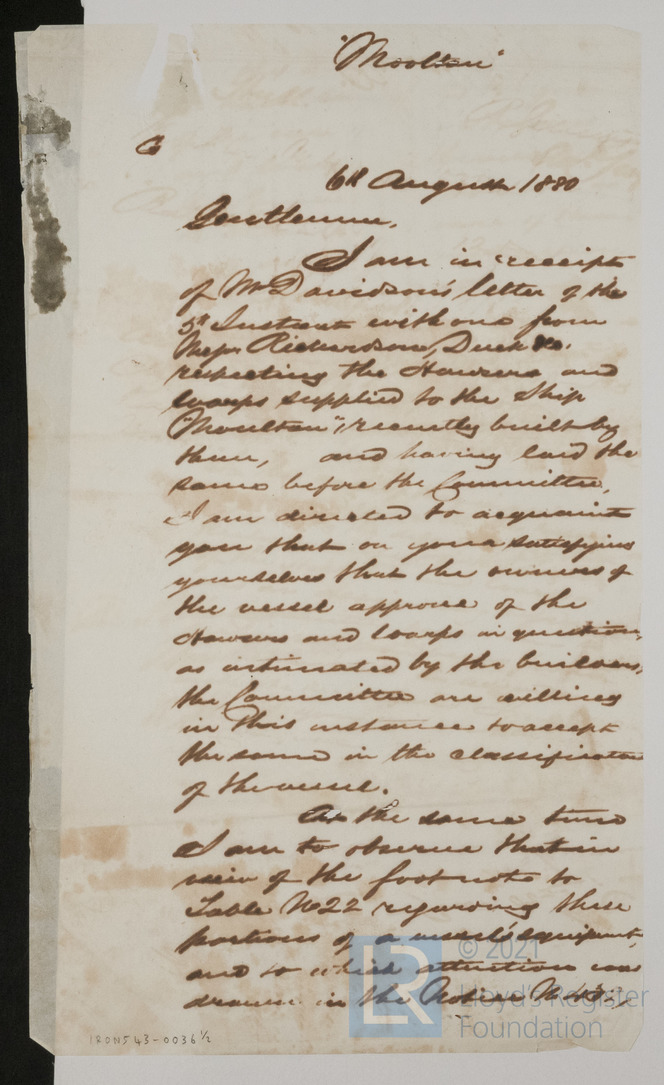 "Moolton"
6th August 1880
Gentlemen,
I am in receipt
of Mr Davidson's letter of the
5th Instant with one from
Messrs Richardson, Duck &c.
respecting the Hawsers and
warps supplied to the Ship
"Moulton", recently built by
them, and having laid the
same before the Committee,
I am directed to acquaint
you that on your satisfying
yourselves that the owners of
the vessel approve of the
Hawsers and Warps in question,
as intimated by the builders,
the Committee are willing
in this instance to accept
the same in the classification
of the vessel.
At the same time
I am to observe that in
view of the footnote to
Table No 22 regarding these
portions of a vessel's equipment,
and to which attention was
drawn in the Notice No
© 2021
LR Lloyd's Register
Foundation
IRON543-0036 1/2